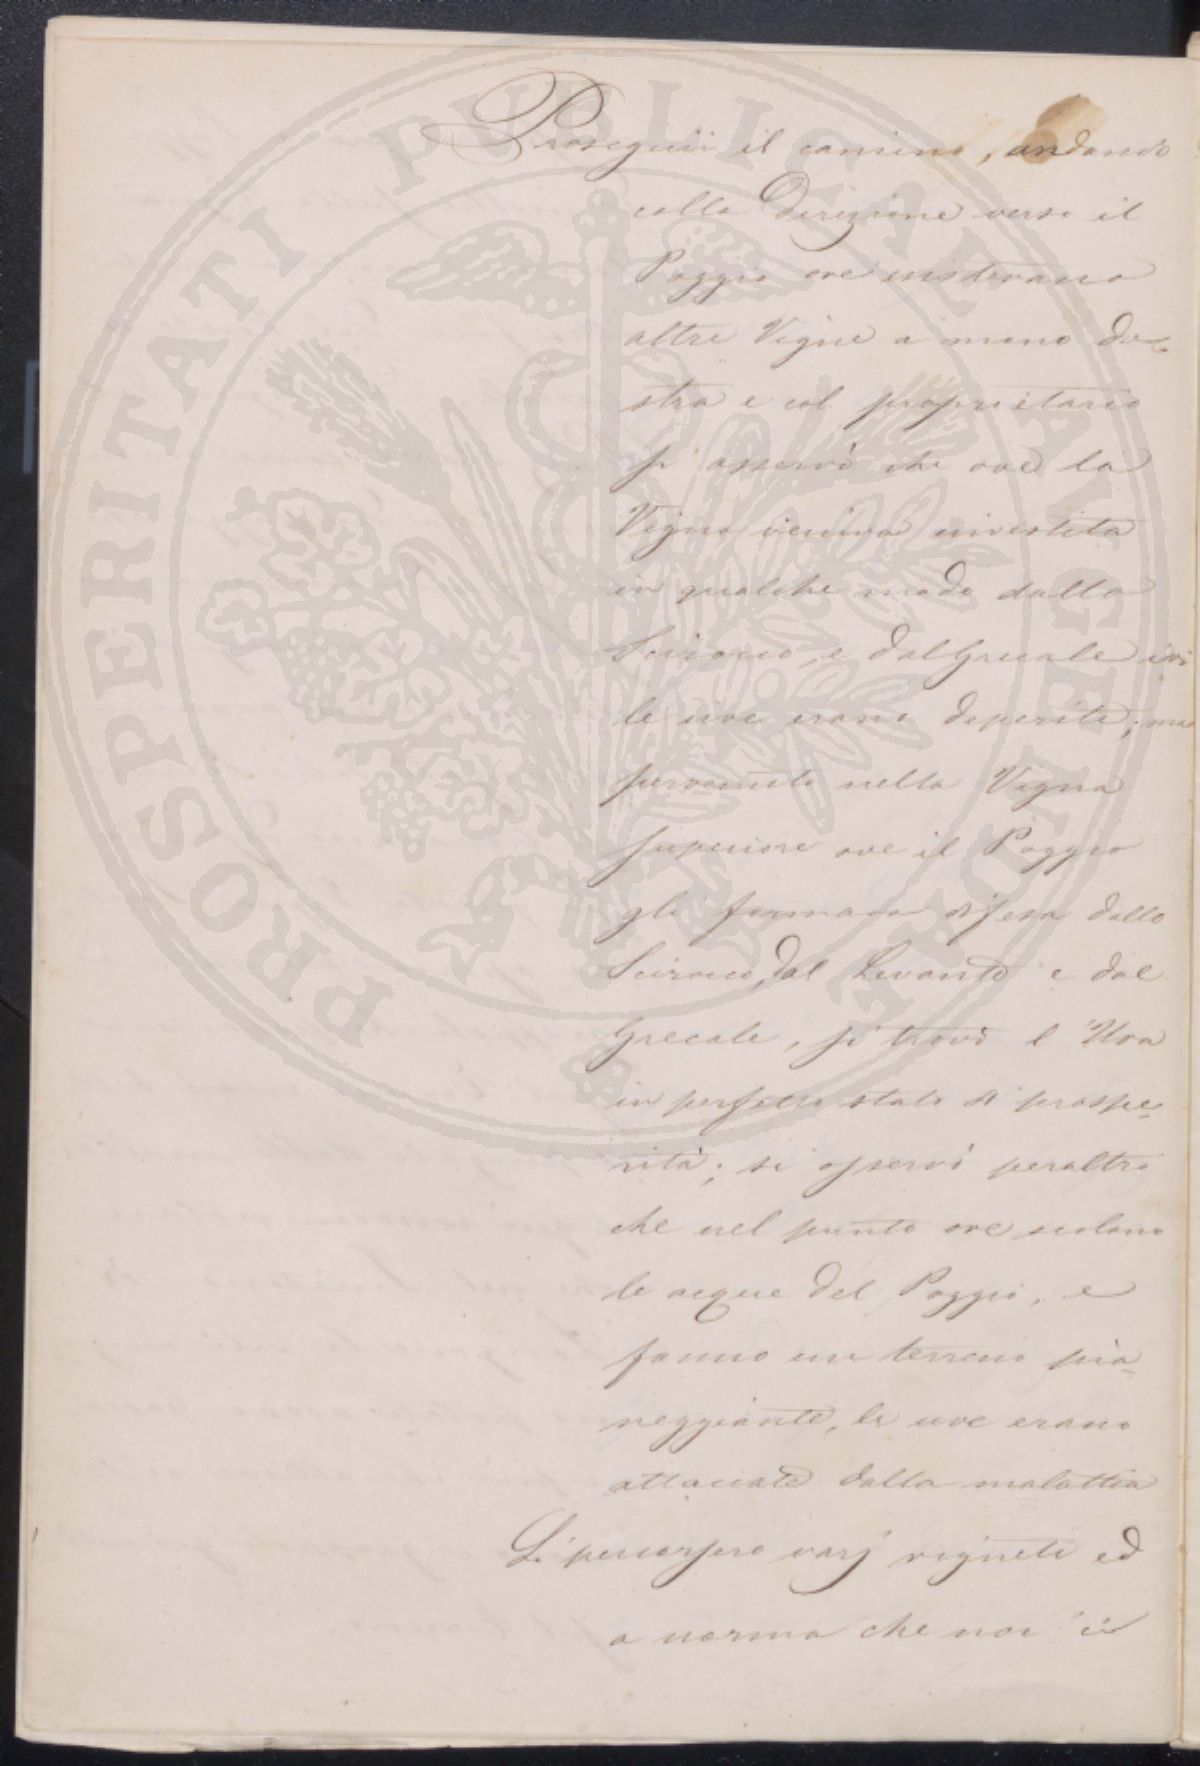 Proseguii il camino, andando
colla Direzione verso il
Poggio ove esistevano
altre Vigne a mano de=
stra e col proprietario
si osservò che ove la
Vigna veniva investita
in qualche modo dalla
Scirocco, e dal Grecale ivi
le uve erano deperite; ma
pervenuto nella Vigna
superiore ove il Poggio
gli formava difesa dallo
Scirocco, dal Levante e dal
Grecale, si trovò l'Uva
in perfetto stato di prospe=
rità; si osservò peraltro
che nel punto ove scolano
le acque del Poggio, e
fanno un terreno pia=
neggiante, le uve erano
attaccate dalla malattia
Si percorsero varj vigneti ed
a norma che noi ci
PROSPERITATI PUBLICAE AVGENDAE